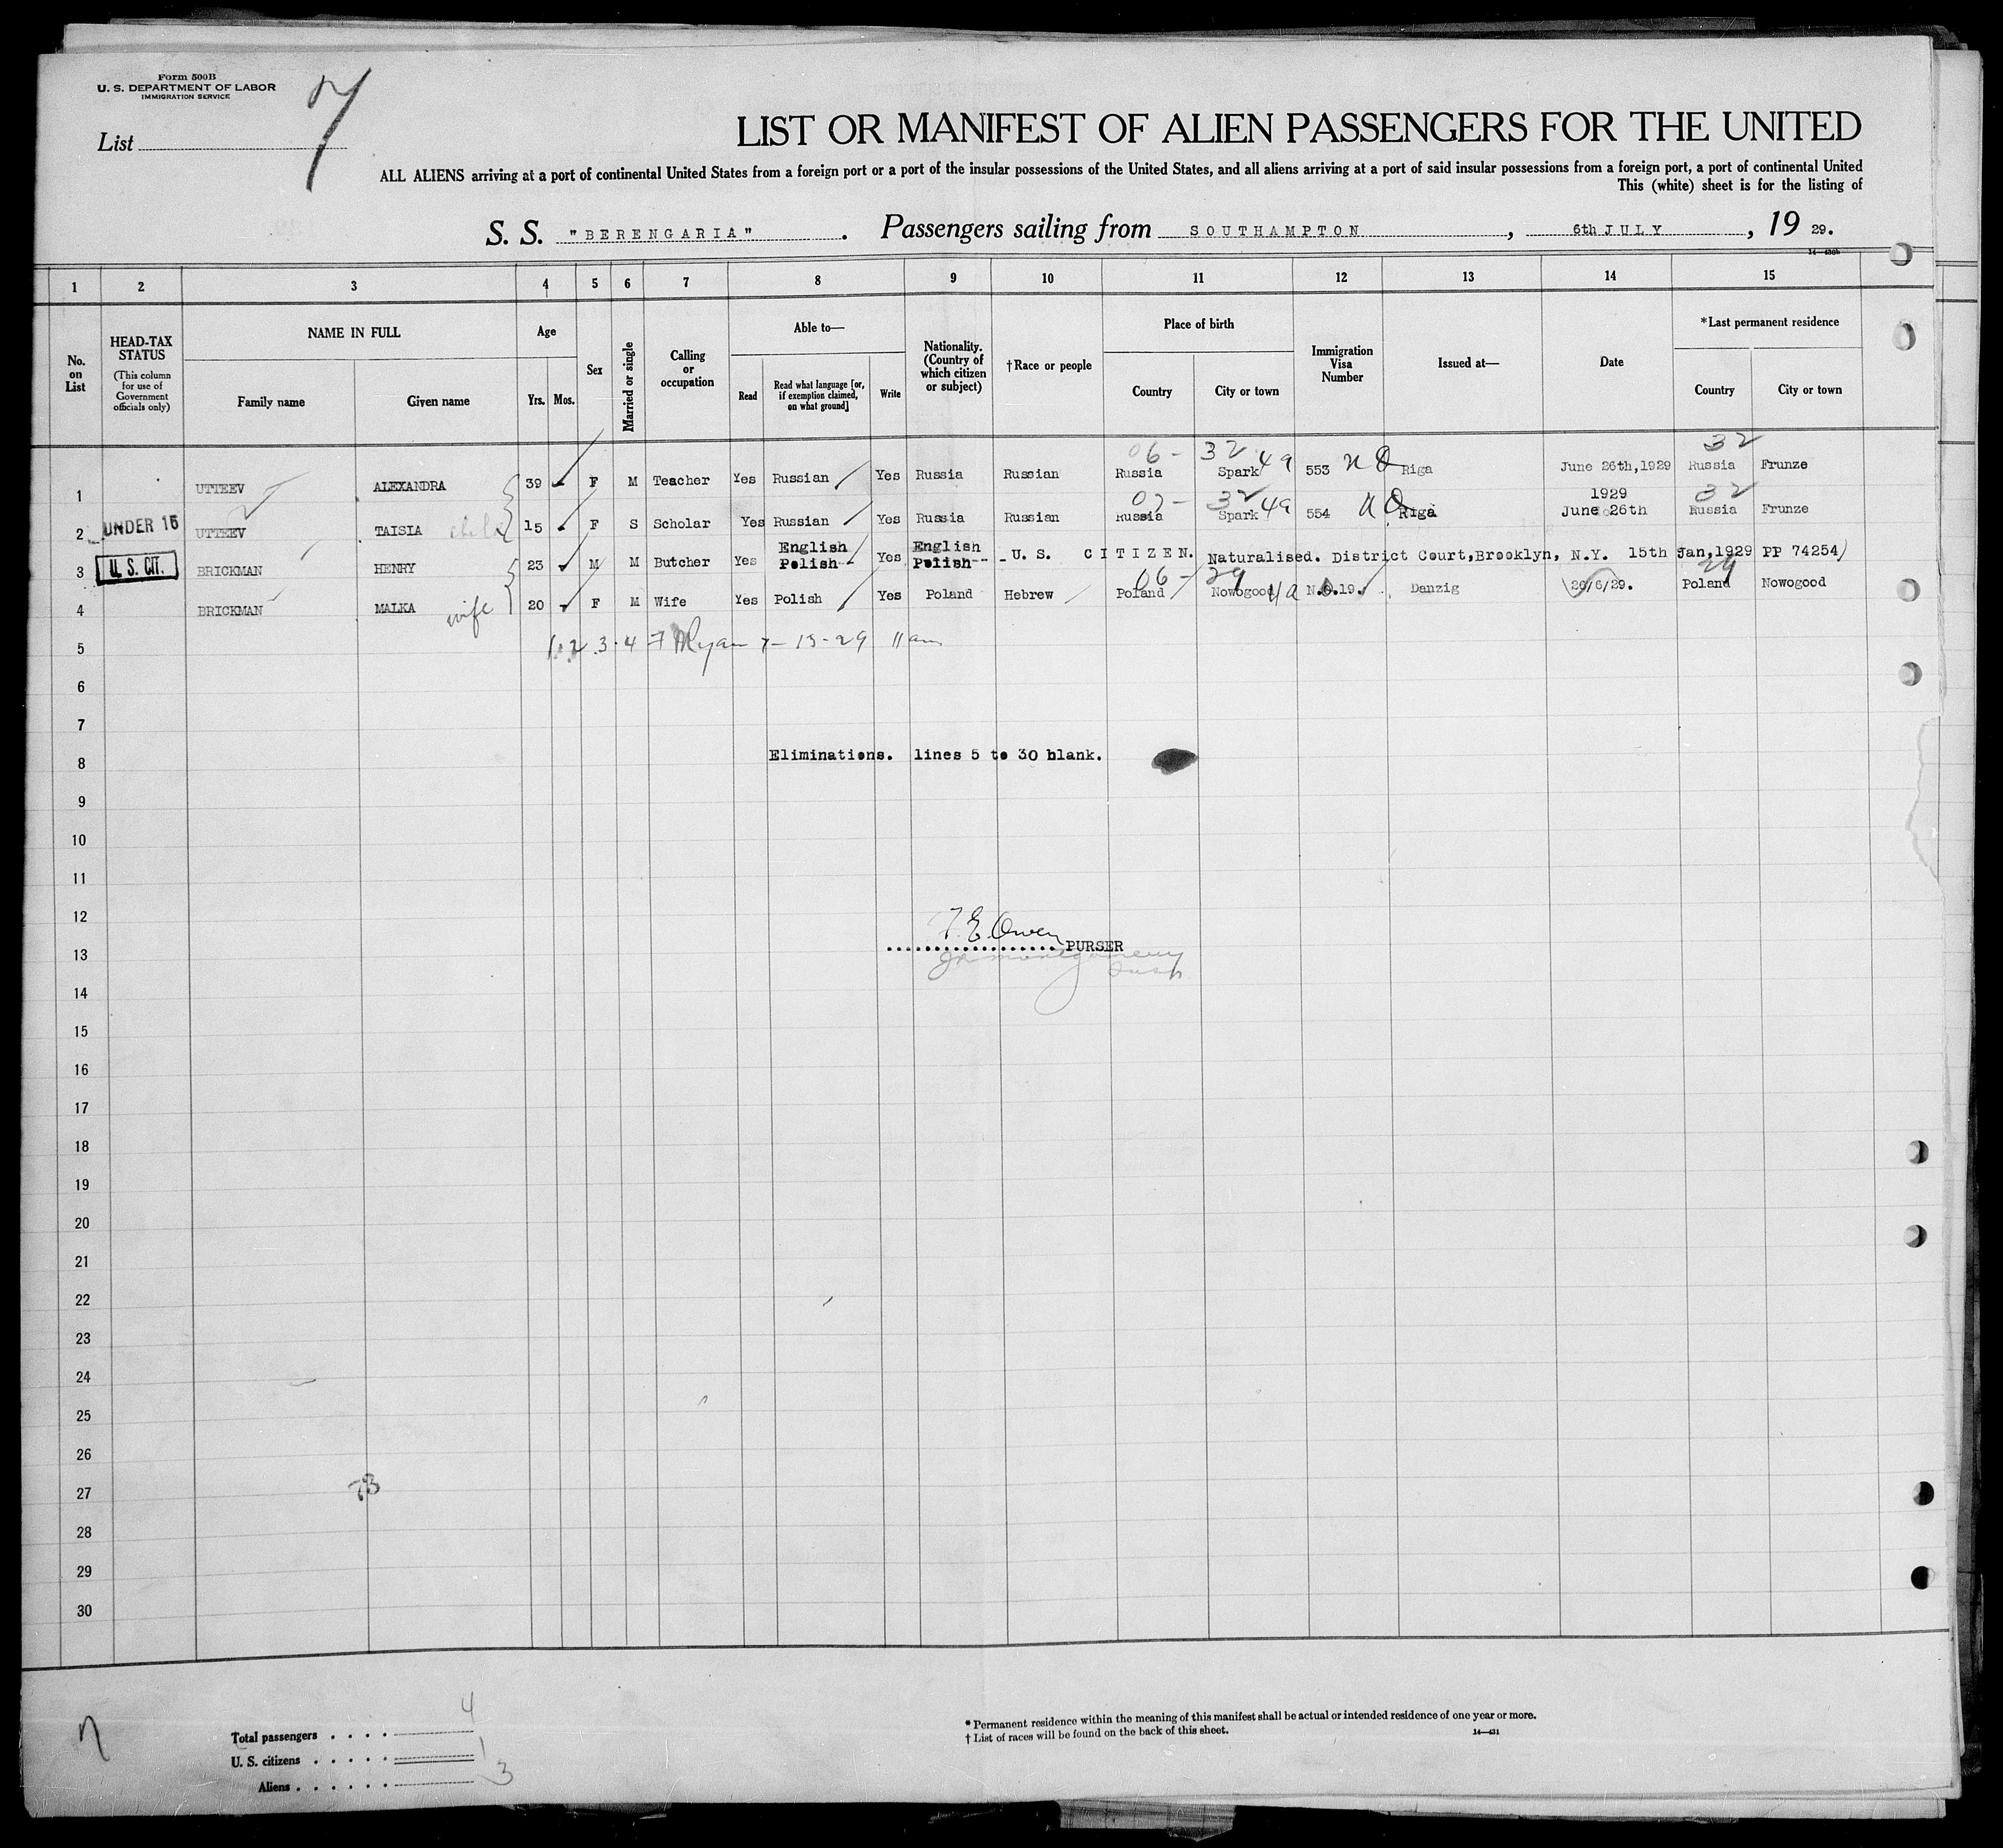 Form 500B
U. S. DEPARTMENT OF LABOR
IMMIGRATION SERVICE
List 7
LIST OR MANIFEST OF ALIEN PASSENGERS FOR THE UNITED
ALL ALIENS arriving at a port of continental United States from a foreign port or a port of the insular possessions of the United States, and all aliens arriving at a port of said insular possessions from a foreign port, a port of continental United
This (white) sheet is for the listing of
S. S. "BERENGARIA". Passengers sailing from SOUTHAMPTON, 6th JULY, 19 29.
1 2 3 4 5 6 7 8 9 10 11 12 13 14 15
No. on List
HEAD-TAX STATUS (This column for use of Government officials only)
NAME IN FULL
Family name
Given name
Age
Yrs. Mos.
Sex
Married or single
Calling or occupation
Able to—
Read
Read what language [or, if exemption claimed, on what ground]
Write
Nationality. (Country of which citizen or subject)
†Race or people
Place of birth
Country
City or town
Immigration Visa Number
Issued at—
Date
*Last permanent residence
Country
City or town
06 - 32 32
1 UTTEEV ALEXANDRA 39 F M Teacher Yes Russian Yes Russia Russian Russia Spark 49 553 Riga June 26th,1929 Russia Frunze
07 - 32 1929 32
2 UNDER 16 UTTEEV TAISIA child 15 F S Scholar Yes Russian Yes Russia Russian Russia Spark 49 554 Riga June 26th Russia Frunze
3 U. S. CIT. BRICKMAN HENRY 23 M M Butcher Yes English Polish Yes English Polish -- U. S. CITIZEN. Naturalised. District Court,Brooklyn, N.Y. 15th Jan,1929 PP 74254)
06 - 29 29
4 BRICKMAN MALKA wife 20 F M Wife Yes Polish Yes Poland Hebrew Poland Nowogood N.Q.19. Danzig 26/6/29. Poland Nowogood
5 1. 2. 3. 4 Ryan 7-13-29 11 am
6
7
8 Eliminations. lines 5 to 30 blank.
9
10
11
12
13 T. E. Owen PURSER
14
15
16
17
18
19
20
21
22
23
24
25
26
27
28
29
30
Total passengers . . . . 4
U. S. citizens . . . . . 1
Aliens . . . . . . 3
* Permanent residence within the meaning of this manifest shall be actual or intended residence of one year or more.
† List of races will be found on the back of this sheet.
14—431